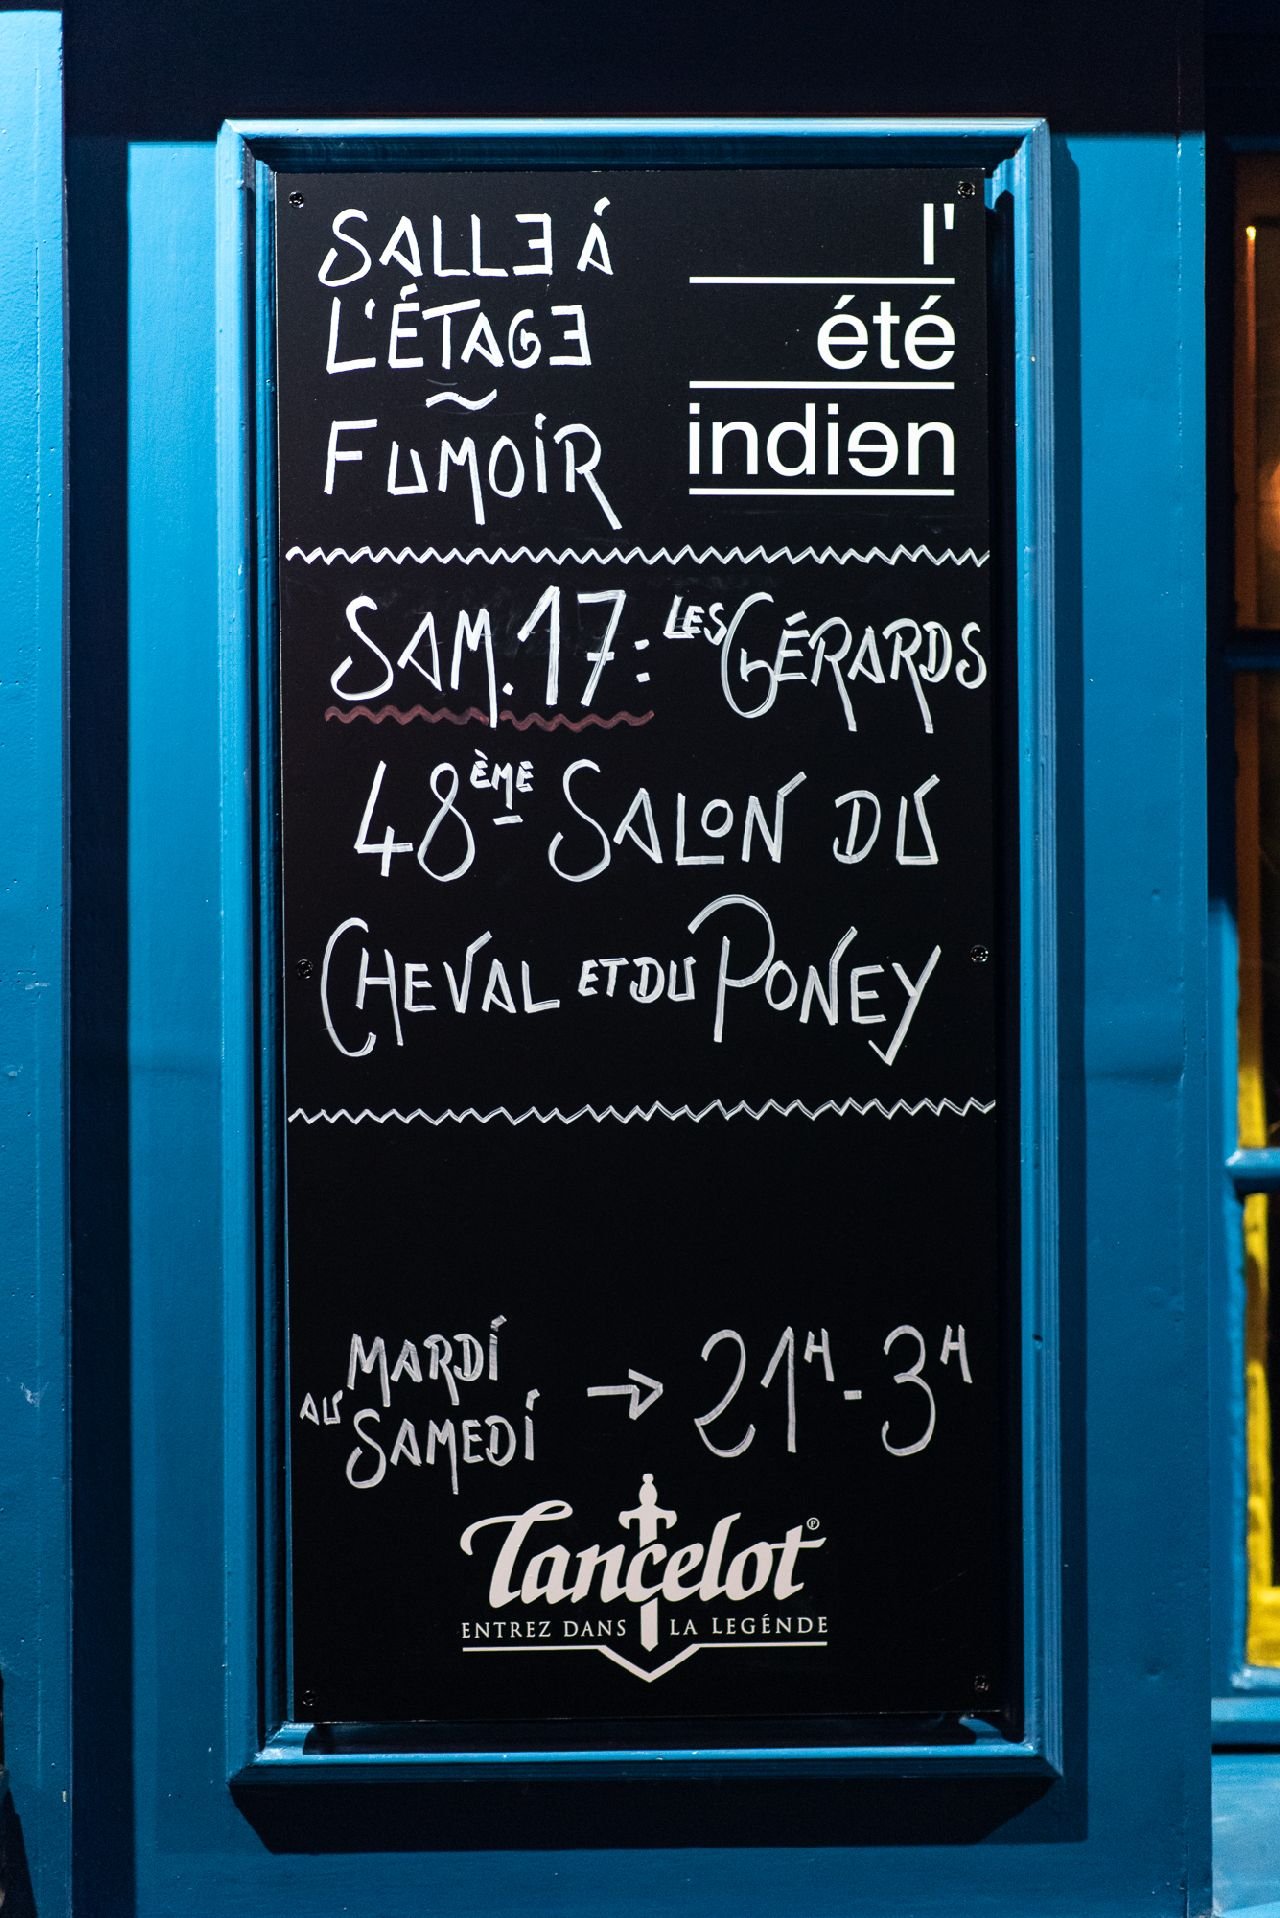 SALLE Á
L'ÉTAGE
~
FUMOIR
l'
été
indien
SAM. 17 : LES GÉRARDS
48ÈME SALON DU
CHEVAL ET DU PONEY
MARDI
AU SAMEDI
→ 21H - 3H
Lancelot
ENTREZ DANS LA LEGÉNDE